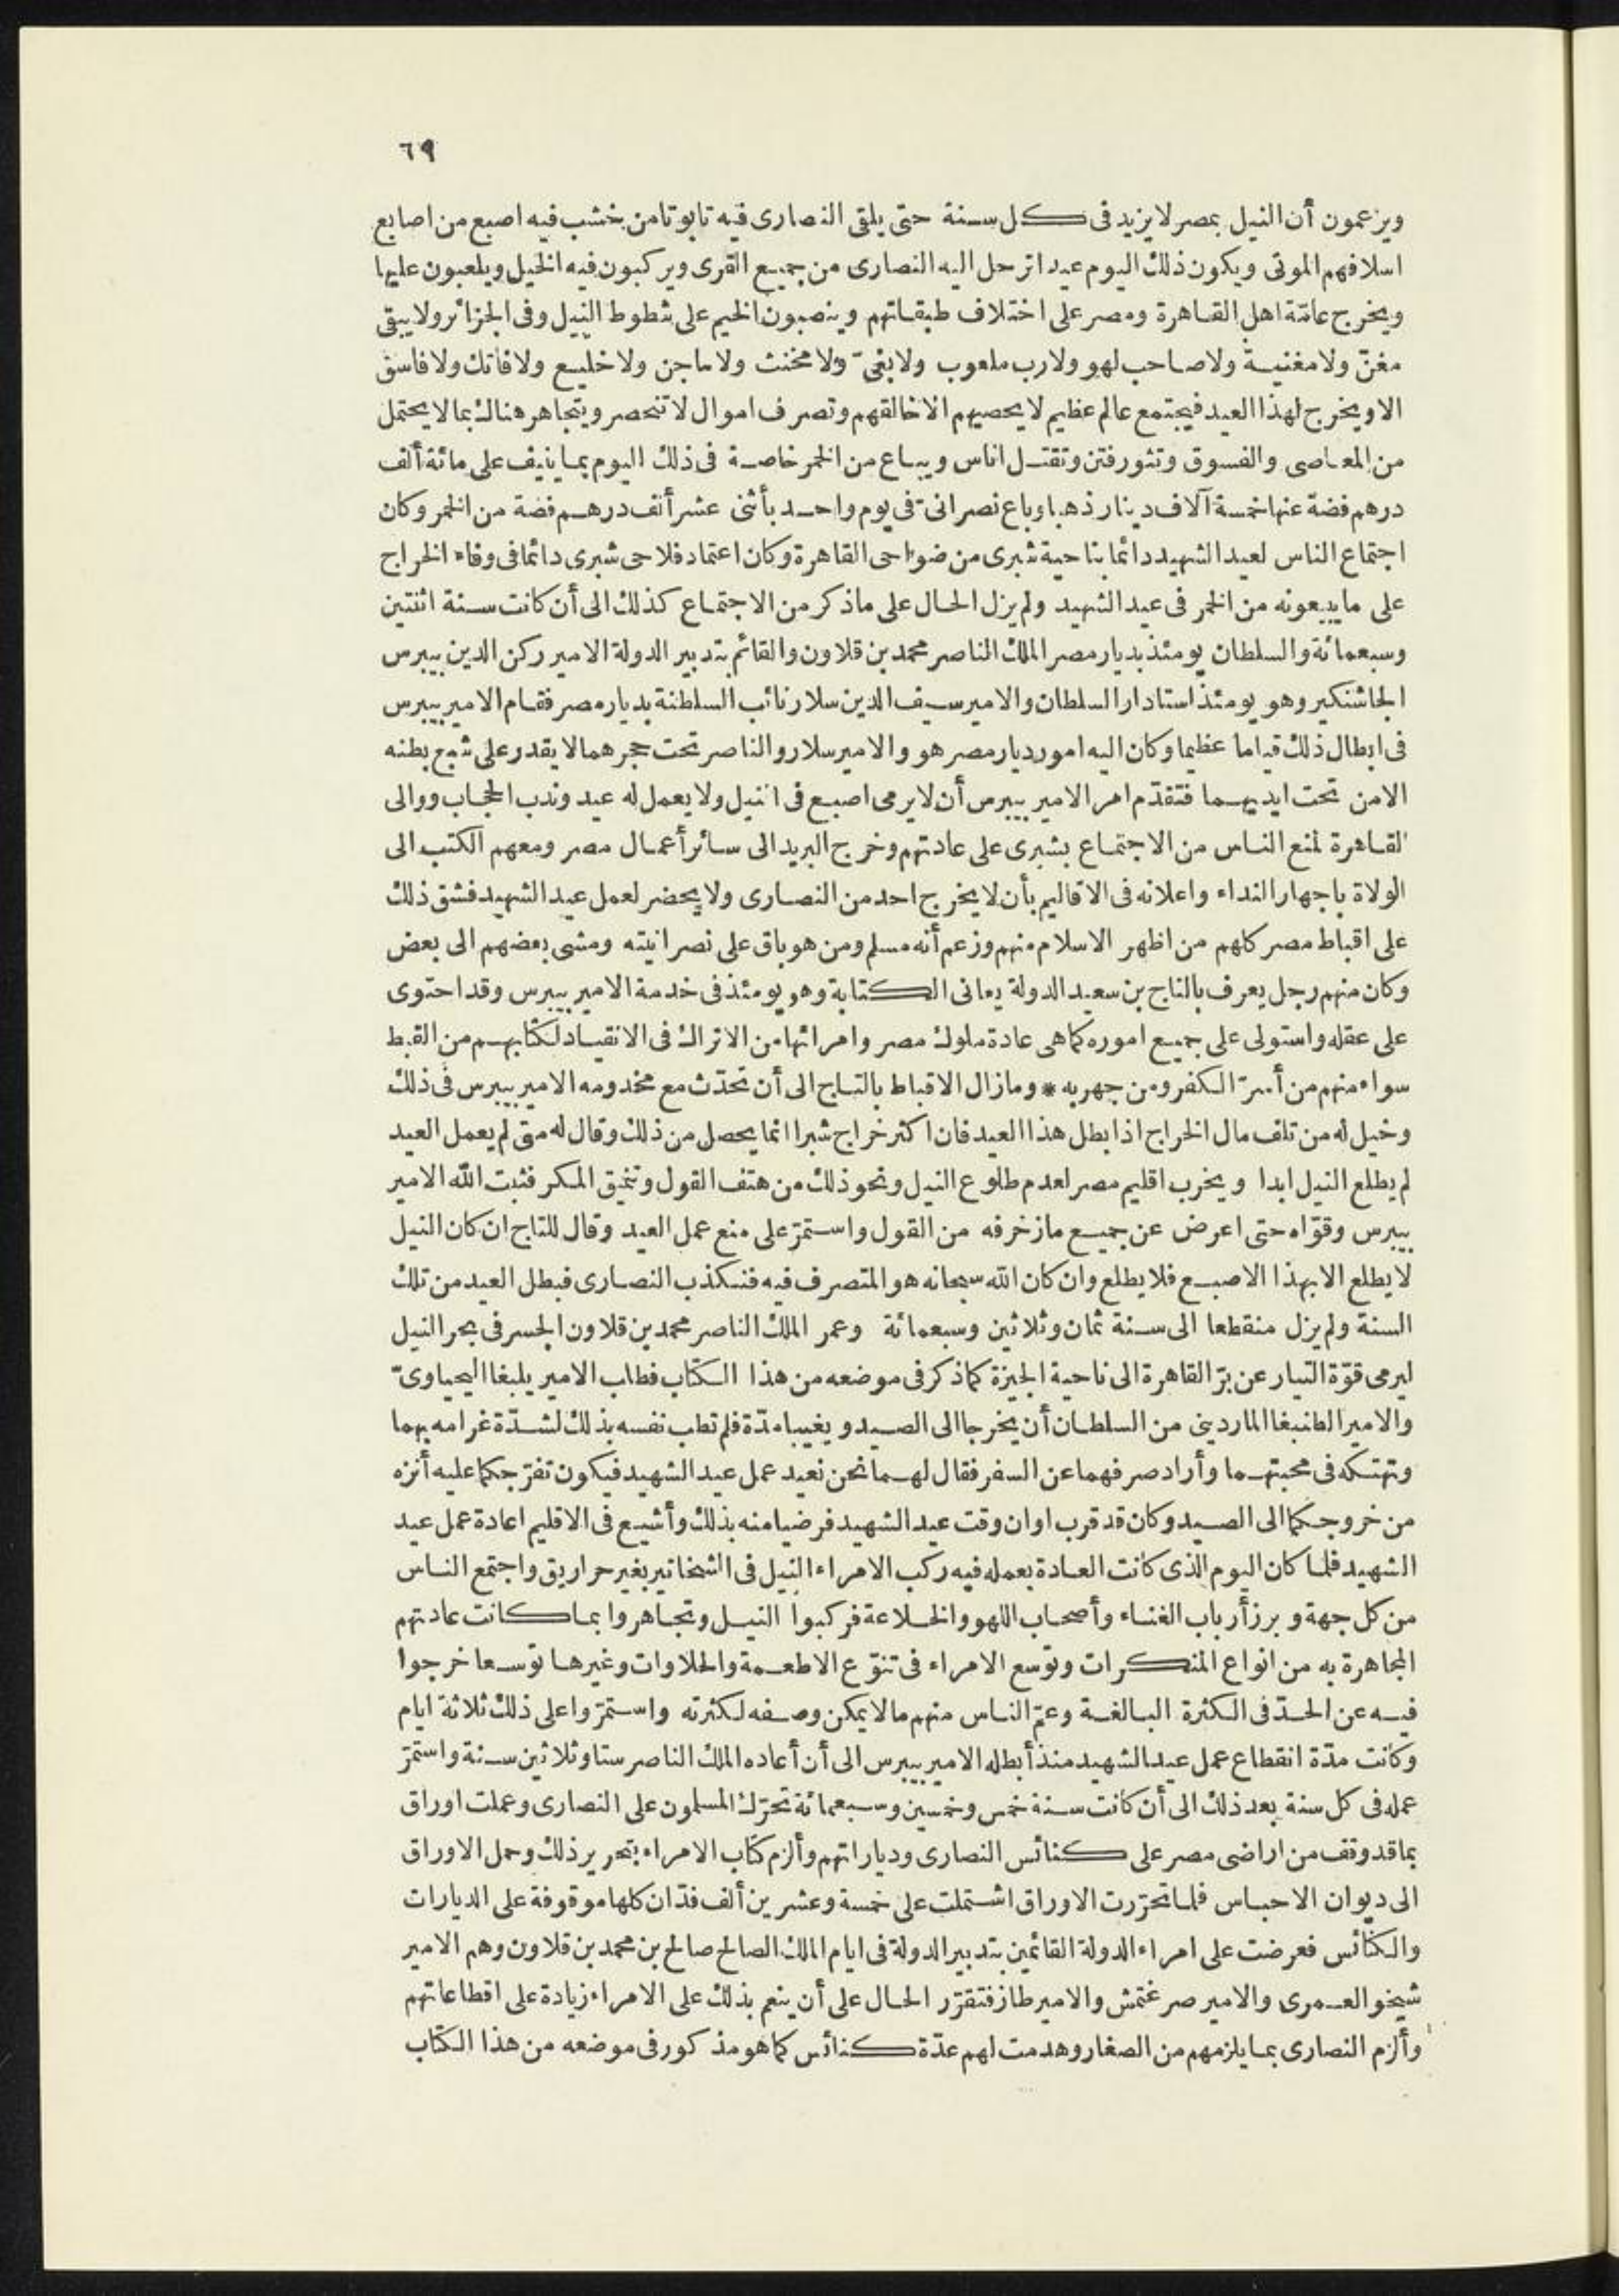 ٦٩
ويزعمون أن النيل بمصر لا يزيد فى كل سنة حتى يلقى النصارى فيه تابوتا من خشب فيه اصبع من اصابع
اسلافهم الموتى ويكون ذلك اليوم عيدا ترحل اليه النصارى من جميع القرى ويركبون فيه الخيل ويلعبون عليها
ويخرج عامّة اهل القاهرة ومصر على اختلاف طبقاتهم وينصبون الخيم على شطوط النيل وفى الجزائر ولا يبقى
مغنّ ولا مغنية ولا صاحب لهو ولا رب ملعوب ولا بغىّ ولا مخنث ولا ماجن ولا خليع ولا فاتك ولا فاسق
الا ويخرج لهذا العيد فيجتمع عالم عظيم لا يحصيهم الا خالقهم وتصرف اموال لا تنحصر ويتجاهر هناك بما لا يحتمل
من المعاصى والفسوق وتثور فتن وتقتل اناس ويباع من الخمر خاصة فى ذلك اليوم بما ينيف على مائة ألف
درهم فضة عنها خمسة آلاف دينار ذهبا وباع نصرانىّ فى يوم واحد بأثنى عشر ألف درهم فضة من الخمر وكان
اجتماع الناس لعيد الشهيد دائما بناحية شبرى من ضواحى القاهرة وكان اعتماد فلاحى شبرى دائما فى وفاء الخراج
على ما يبيعونه من الخمر فى عيد الشهيد ولم يزل الحال على ما ذكر من الاجتماع كذلك الى أن كانت سنة اثنتين
وسبعمائة والسلطان يومئذ بديار مصر الملك الناصر محمد بن قلاون والقائم بتدبير الدولة الامير ركن الدين بيبرس
الجاشنكير وهو يومئذ استادار السلطان والامير سيف الدين سلار نائب السلطنة بديار مصر فقام الامير بيبرس
فى ابطال ذلك قياما عظيما وكان اليه امور ديار مصر هو والامير سلار والناصر تحت حجرهما لا يقدر على شبع بطنه
الا من تحت ايديهما فتقدّم امر الامير بيبرس أن لا يرمى اصبع فى النيل ولا يعمل له عيد وندب الحجاب ووالى
القاهرة لمنع الناس من الاجتماع بشبرى على عادتهم وخرج البريد الى سائر أعمال مصر ومعهم الكتب الى
الولاة باجهار النداء واعلانه فى الاقاليم بأن لا يخرج احد من النصارى ولا يحضر لعمل عيد الشهيد فشق ذلك
على اقباط مصر كلهم من اظهر الاسلام منهم وزعم أنه مسلم ومن هو باق على نصرانيته ومشى بعضهم الى بعض
وكان منهم رجل يعرف بالتاج بن سعيد الدولة يعانى الكتابة وهو يومئذ فى خدمة الامير بيبرس وقد احتوى
على عقله واستولى على جميع اموره كما هى عادة ملوك مصر وامرائها من الاتراك فى الانقياد لكتابهم من القبط
سواء منهم من أسرّ الكفر ومن جهر به * وما زال الاقباط بالتاج الى أن تحدّث مع مخدومه الامير بيبرس فى ذلك
وخيل له من تلف مال الخراج اذا بطل هذا العيد فان اكثر خراج شبرا انما يحصل من ذلك وقال له متى لم يعمل العيد
لم يطلع النيل ابدا ويخرب اقليم مصر لعدم طلوع النيل ونحو ذلك من هتف القول وتنميق المكر فثبت الله الامير
بيبرس وقوّاه حتى اعرض عن جميع ما زخرفه من القول واستمرّ على منع عمل العيد وقال للتاج ان كان النيل
لا يطلع الا بهذا الاصبع فلا يطلع وان كان الله سبحانه هو المتصرف فيه فنكذب النصارى فبطل العيد من تلك
السنة ولم يزل منقطعا الى سنة ثمان وثلاثين وسبعمائة وعمر الملك الناصر محمد بن قلاون الجسر فى بحر النيل
ليرمى قوّة التيار عن برّ القاهرة الى ناحية الجيزة كما ذكر فى موضعه من هذا الكتاب فطلب الامير يلبغا اليحياوىّ
والامير الطنبغا الماردينى من السلطان أن يخرجا الى الصيد ويغيبا مدّة فلم تطب نفسه بذلك لشدّة غرامه بهما
وتهتكه فى محبتهما وأراد صرفهما عن السفر فقال لهما نحن نعيد عمل عيد الشهيد فيكون تفرّجكما عليه أنزه
من خروجكما الى الصيد وكان قد قرب اوان وقت عيد الشهيد فرضيا منه بذلك وأشيع فى الاقليم اعادة عمل عيد
الشهيد فلما كان اليوم الذى كانت العادة بعمله فيه ركب الامراء النيل فى الشخاتير بغير حراريق واجتمع الناس
من كل جهة وبرز أرباب الغناء وأصحاب اللهو والخلاعة فركبوا النيل وتجاهروا بما كانت عادتهم
المجاهرة به من انواع المنكرات وتوسع الامراء فى تنوّع الاطعمة والحلاوات وغيرها توسعا خرجوا
فيه عن الحدّ فى الكثرة البالغة وعمّ الناس منهم ما لا يمكن وصفه لكثرته واستمرّوا على ذلك ثلاثة ايام
وكانت مدّة انقطاع عمل عيد الشهيد منذ أبطله الامير بيبرس الى أن أعاده الملك الناصر ستا وثلاثين سنة واستمرّ
عمله فى كل سنة بعد ذلك الى أن كانت سنة خمس وخمسين وسبعمائة تحرّك المسلمون على النصارى وعملت اوراق
بما قد وقف من اراضى مصر على كنائس النصارى ودياراتهم وألزم كتاب الامراء بتحرير ذلك وحمل الاوراق
الى ديوان الاحباس فلما تحرّرت الاوراق اشتملت على خمسة وعشرين ألف فدّان كلها موقوفة على الديارات
والكنائس فعرضت على امراء الدولة القائمين بتدبير الدولة فى ايام الملك الصالح صالح بن محمد بن قلاون وهم الامير
شيخو العمرى والامير صرغتمش والامير طاز فتقرّر الحال على أن ينعم بذلك على الامراء زيادة على اقطاعاتهم
وألزم النصارى بما يلزمهم من الصغار وهدمت لهم عدّة كنائس كما هو مذكور فى موضعه من هذا الكتاب